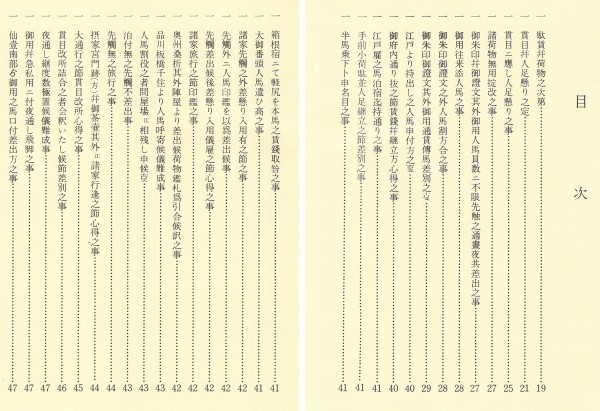 目次
一 駄賃幷荷物之次第 19
一 貫目幷人足懸りの定 21
一 貫目ニ應し人足懸り之事 25
一 諸荷物無用捨改之事 27
一 御朱印幷御證文其外御用人馬員数ニ不限先触之通晝夜共差出之事 27
一 御用往来添人馬之事 28
一 御朱印御證文之外人馬割方合之事 28
一 御朱印御證文其外御用通賃傳馬差別之
一 江戸より持出し之人馬申付方之 40
一 御府内通り抜之節賃錢幷継立方心得之事 40
一 江戸雇之馬泊宿迄持通り之事 41
一 手前小荷駄並人足継立之節差別之事 41
一 半馬乗下ト申名目之事 41
一 箱根宿ニて軽尻を本馬之賃錢取笞之事 41
一 大御番頭人馬遣ひ高之事 41
一 諸家先觸之外差懸り入用有之節之事 42
一 先觸外ニ人馬印鑑を以爲差出候事 42
一 先觸差出候後差懸り入用儀雇之節心得之事 42
一 諸家旅行之節印鑑之事 42
一 奥州桑折其外陣屋より差出候荷物鑑札爲引合候訳之事 42
一 品川板橋千住より人馬呼寄候儀難成事 43
一 人馬割役之者問屋場江相残し申候
一 泊付無之先觸不差出事 43
一 先觸無之旅行之事 44
一 摂家宮門跡 方 幷御茶壷其外江諸家行逢之節心得之事 44
一 大通行之節貫目改所心得之事 45
一 貫目改所詰合之者会釈いたし候節差別之事 46
一 夜通し継度数極置候儀難成事 47
一 御用幷急私用ニ付夜通し飛脚之事 47
一 仙臺南部ゟ御用之馬口付差出方之事 47